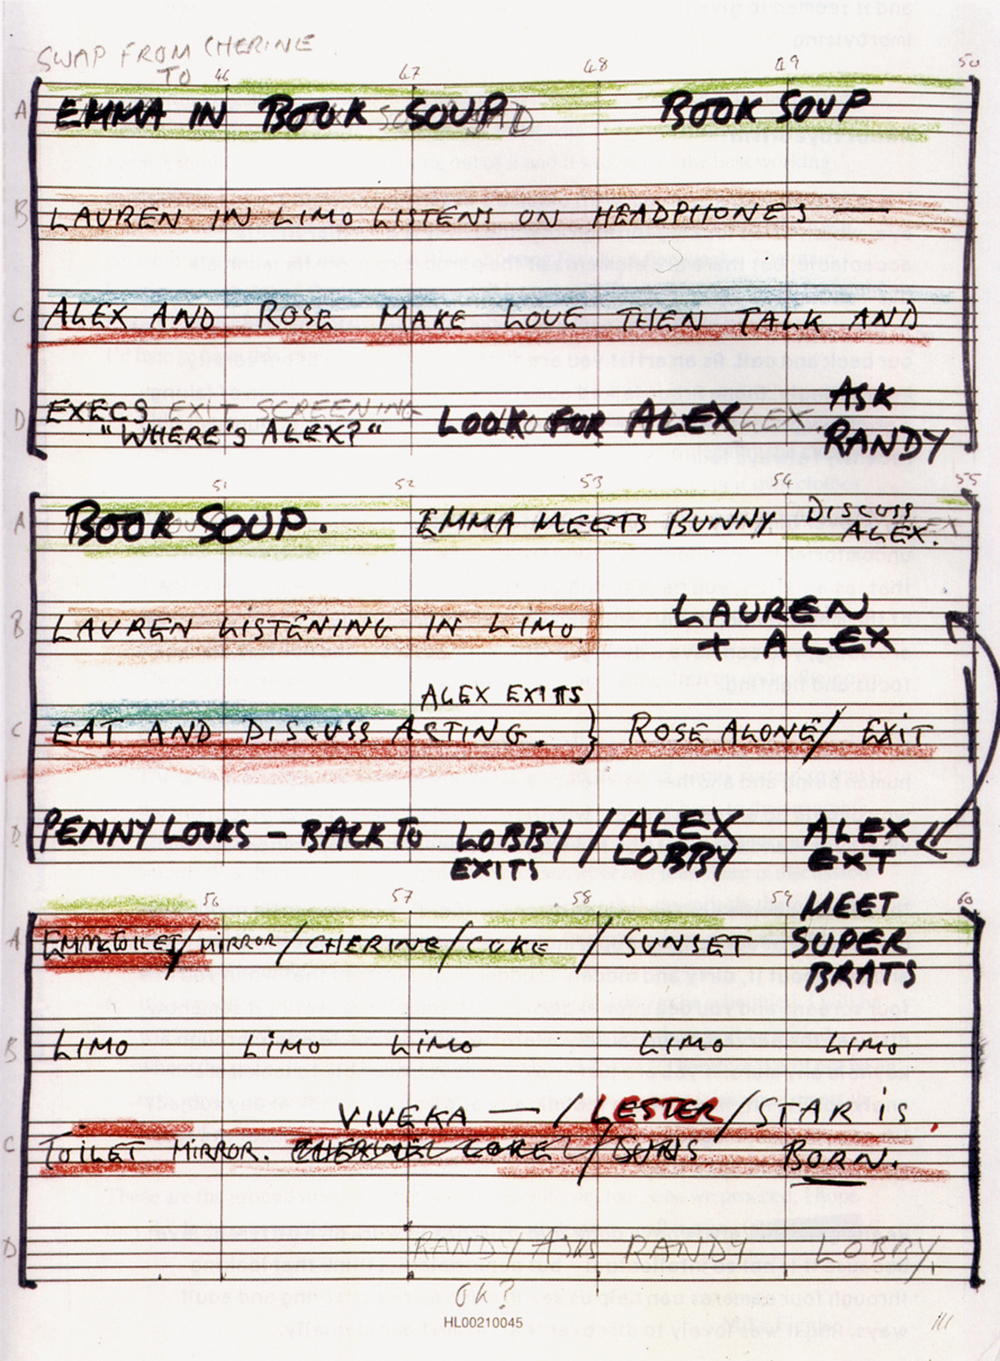 SWAP FROM CHERINE
TO 46 47 48 49 50
A EMMA IN BOOK SOUP BOOK SOUP
B LAUREN IN LIMO LISTENS ON HEADPHONES —
C ALEX AND ROSE MAKE LOVE THEN TALK AND
D EXECS EXIT SCREENING LOOK FOR ALEX ASK
"WHERE'S ALEX?" RANDY
51 52 53 54 55
A BOOK SOUP. EMMA MEETS BUNNY DISCUSS
ALEX.
B LAUREN LISTENING IN LIMO. LAUREN
+ ALEX
ALEX EXITS
C EAT AND DISCUSS ACTING. } ROSE ALONE/ EXIT
D PENNY LOOKS – BACK TO LOBBY / ALEX ALEX
EXITS LOBBY EXT
56 57 58 59 60
MEET
A EMMA TOILET/MIRROR/CHERINE/COKE / SUNSET SUPER
BRATS
B LIMO LIMO LIMO LIMO LIMO
VIVEKA — /LESTER/STAR IS
C TOILET MIRROR. CHERINE COKE / BORN.
D RANDY ASKS RANDY LOBBY.
OK?
HL00210045